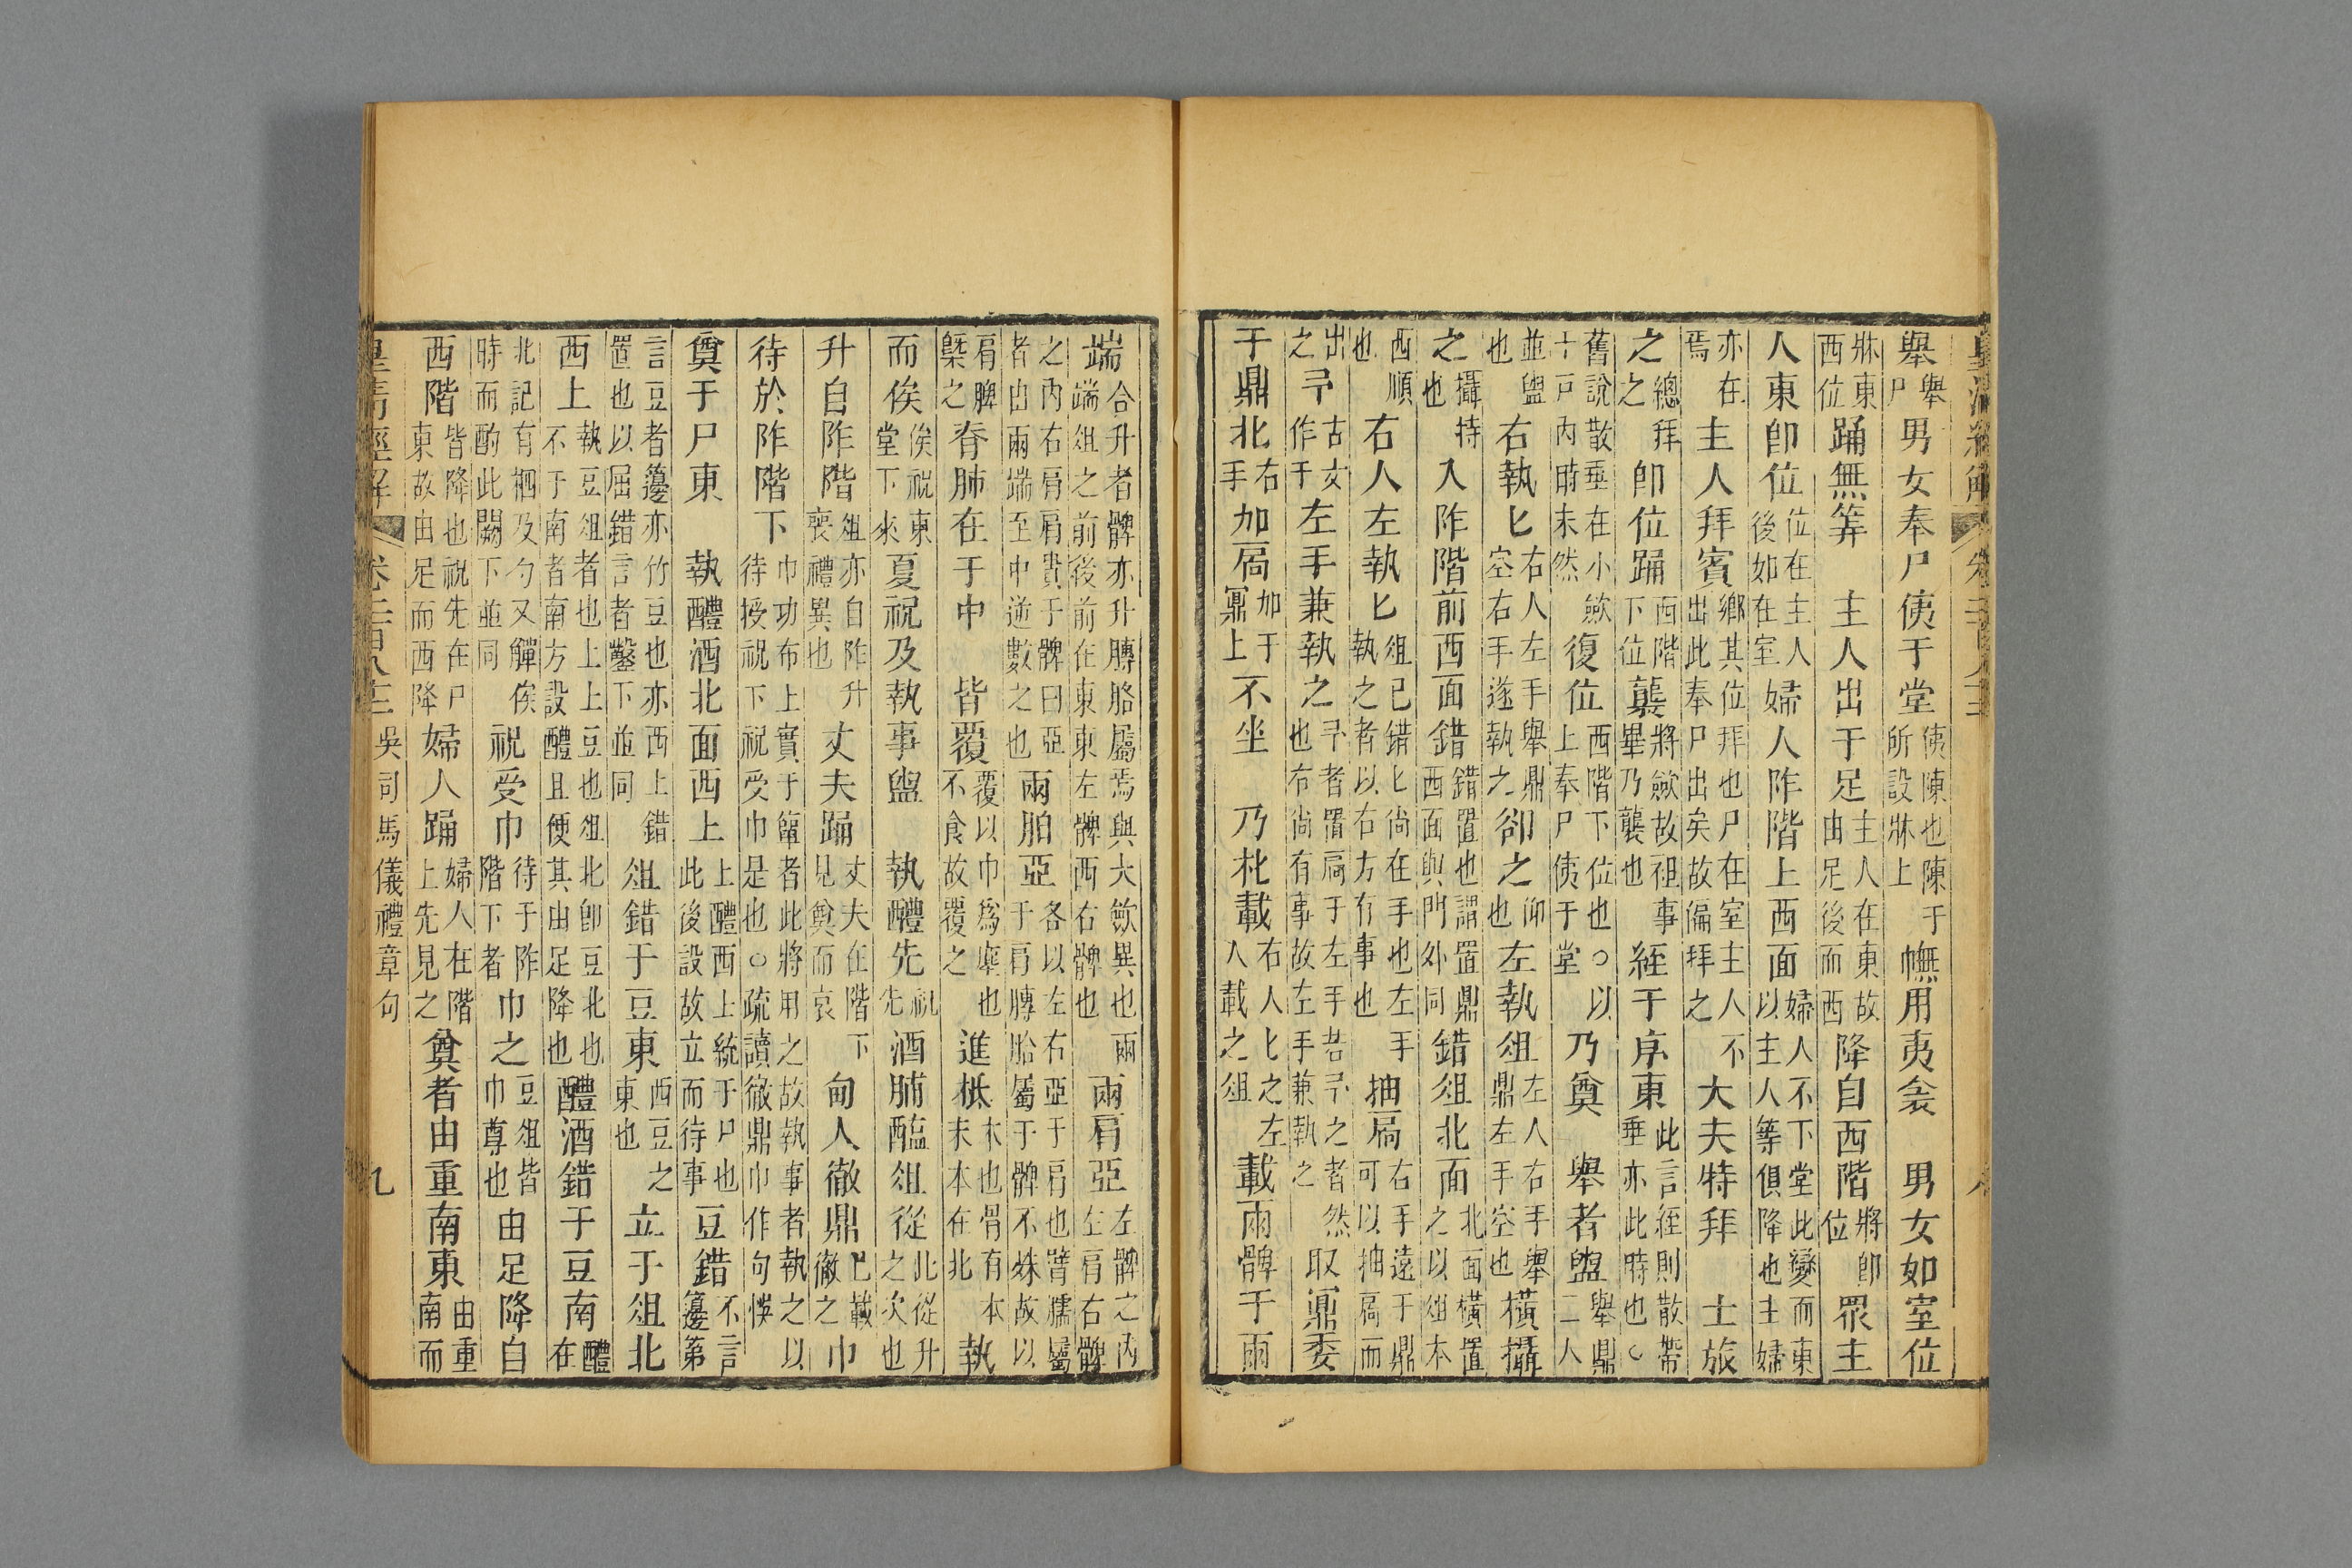 皇清經解 卷二百八十三
舉舉尸男女奉尸侇于堂侇陳也陳于所設牀上幠用夷衾 男女如室位
牀東西位踊無筭 主人出于足主人在東故由足後而西降自西階將卽位眾主
人東卽位位在主人後如在室婦人阼階上西面婦人不下堂此變而東以主人等俱降也主婦
亦在焉主人拜賓鄉其位拜也尸在室主人不出此奉尸出矣故偏拜之大夫特拜 士旅
之總拜之卽位踊西階下位襲將斂故袒事畢乃襲也絰于序東此言絰則散帶垂亦此時也○
舊說散垂在小斂于戸內時未然復位西階下位也○以上奉尸侇于堂乃奠 舉者盥舉鼎二人
並盥也右執匕右人左手舉鼎空右手遂執之卻之仰也左執俎左人右手舉鼎左手空也橫攝
之攝持也入阼階前西面錯錯置也謂置鼎西面與門外同錯俎北面北面橫置之以俎本
西順也右人左執匕俎已錯匕尚在手也左手執之者以右方有事也抽扃右手遠于鼎可以抽扃而
出之予古文作于左手兼執之予者置扃于左手若予之者然也右尚有事故左手兼執之取鼏委
于鼎北右手加扃加于鼏上不坐 乃朼載右人匕之左人載之俎載兩髀于兩
端合升者髀亦升膞胳屬焉與大斂異也兩端俎之前後前在東東左髀西右髀也兩肩亞左髀之內左肩右髀
之內右肩肩貴于髀曰亞者由兩端至中遞數之也兩胉亞各以左右亞于肩也臂臑屬于肩膞胎屬于髀不殊故以
肩脾槩之脊肺在于中 皆覆覆以巾爲塵也不食故覆之進柢本也骨有本末本在北執
而俟俟祝東堂下來夏祝及執事盥 執醴先祝先酒脯醢俎從此從升之次也
升自阼階俎亦自阼升喪禮異也丈夫踊丈夫在階下見奠而哀甸人徹鼎已載徹之巾
待於阼階下巾功布上實于簞者此將用之故執事者執之以待授祝下祝受巾是也○疏讀徹鼎巾作句悞
奠于尸東 執醴酒北面西上上醴西上統于尸也此後設故立而待事豆錯不言籩第
言豆者籩亦竹豆也亦西上錯置也以屈錯言者鑿下並同俎錯于豆東西豆之東也立于俎北
西上執豆俎者也上上豆也俎北卽豆北也不于南者南方設醴且便其由足降也醴酒錯于豆南醴在
北記有柶及勺又觶俟時而酌此闕下並同祝受巾待于阼階下者巾之豆俎皆巾尊也由足降自
西階皆降也祝先在尸東故由足而西降婦人踊婦人在階上先見之奠者由重南東由重南而
皇清經解 卷二百八十三 吳司馬儀禮章句 九